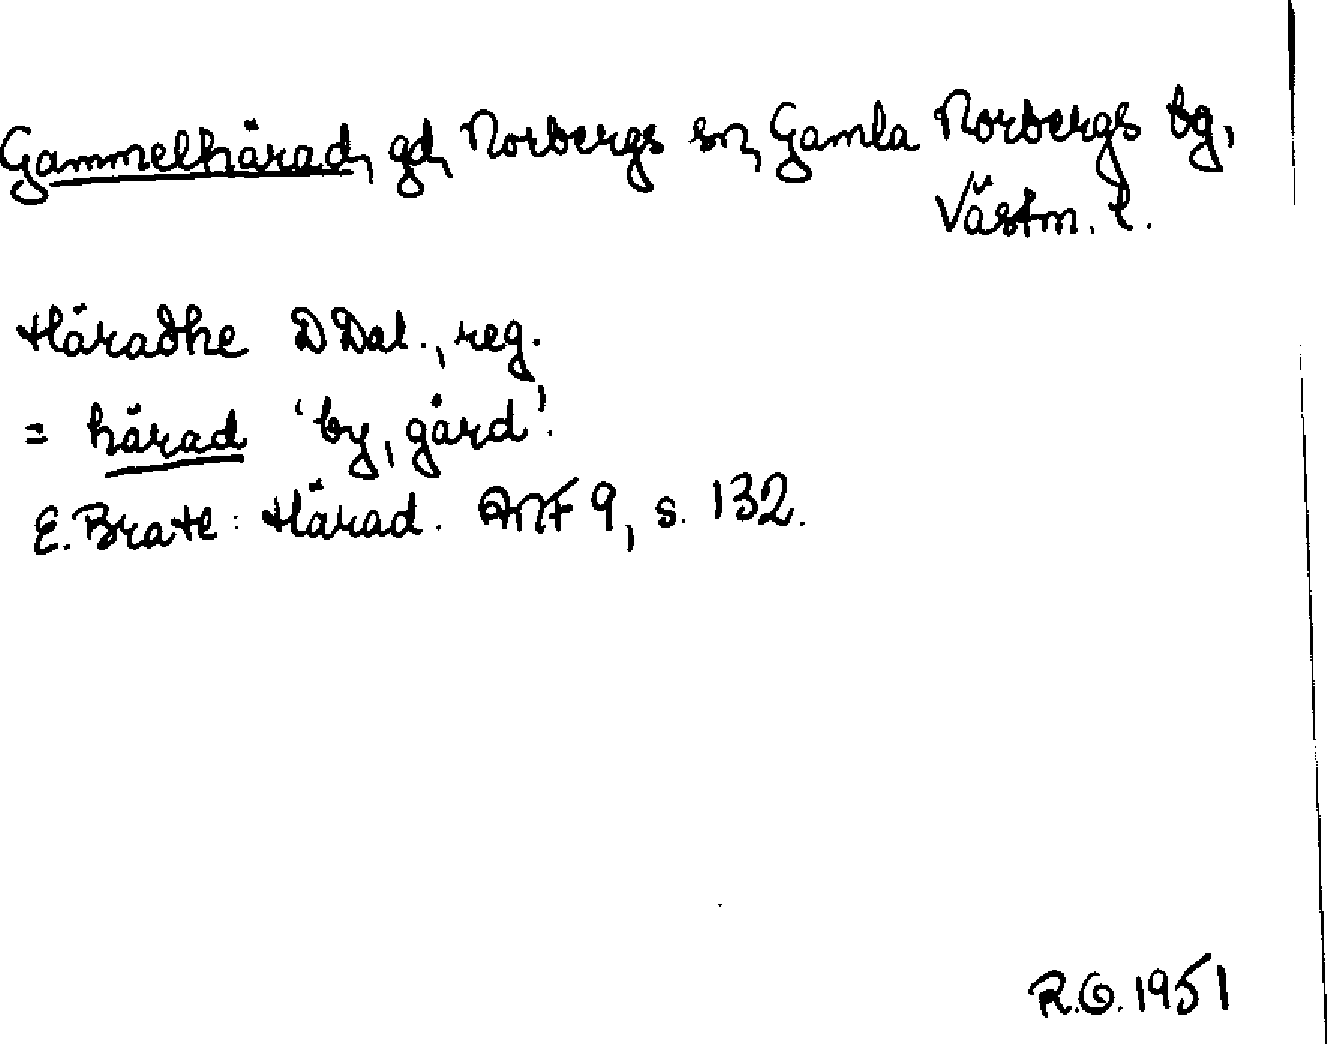 Gammelhärad, gd, Norbergs sn, Gamla Norbergs bg,
Västm. l.
Häradhe DDal., reg.
= härad 'by, gård'.
E. Brate: Härad. ANF 9, s. 132.
R.O. 1951